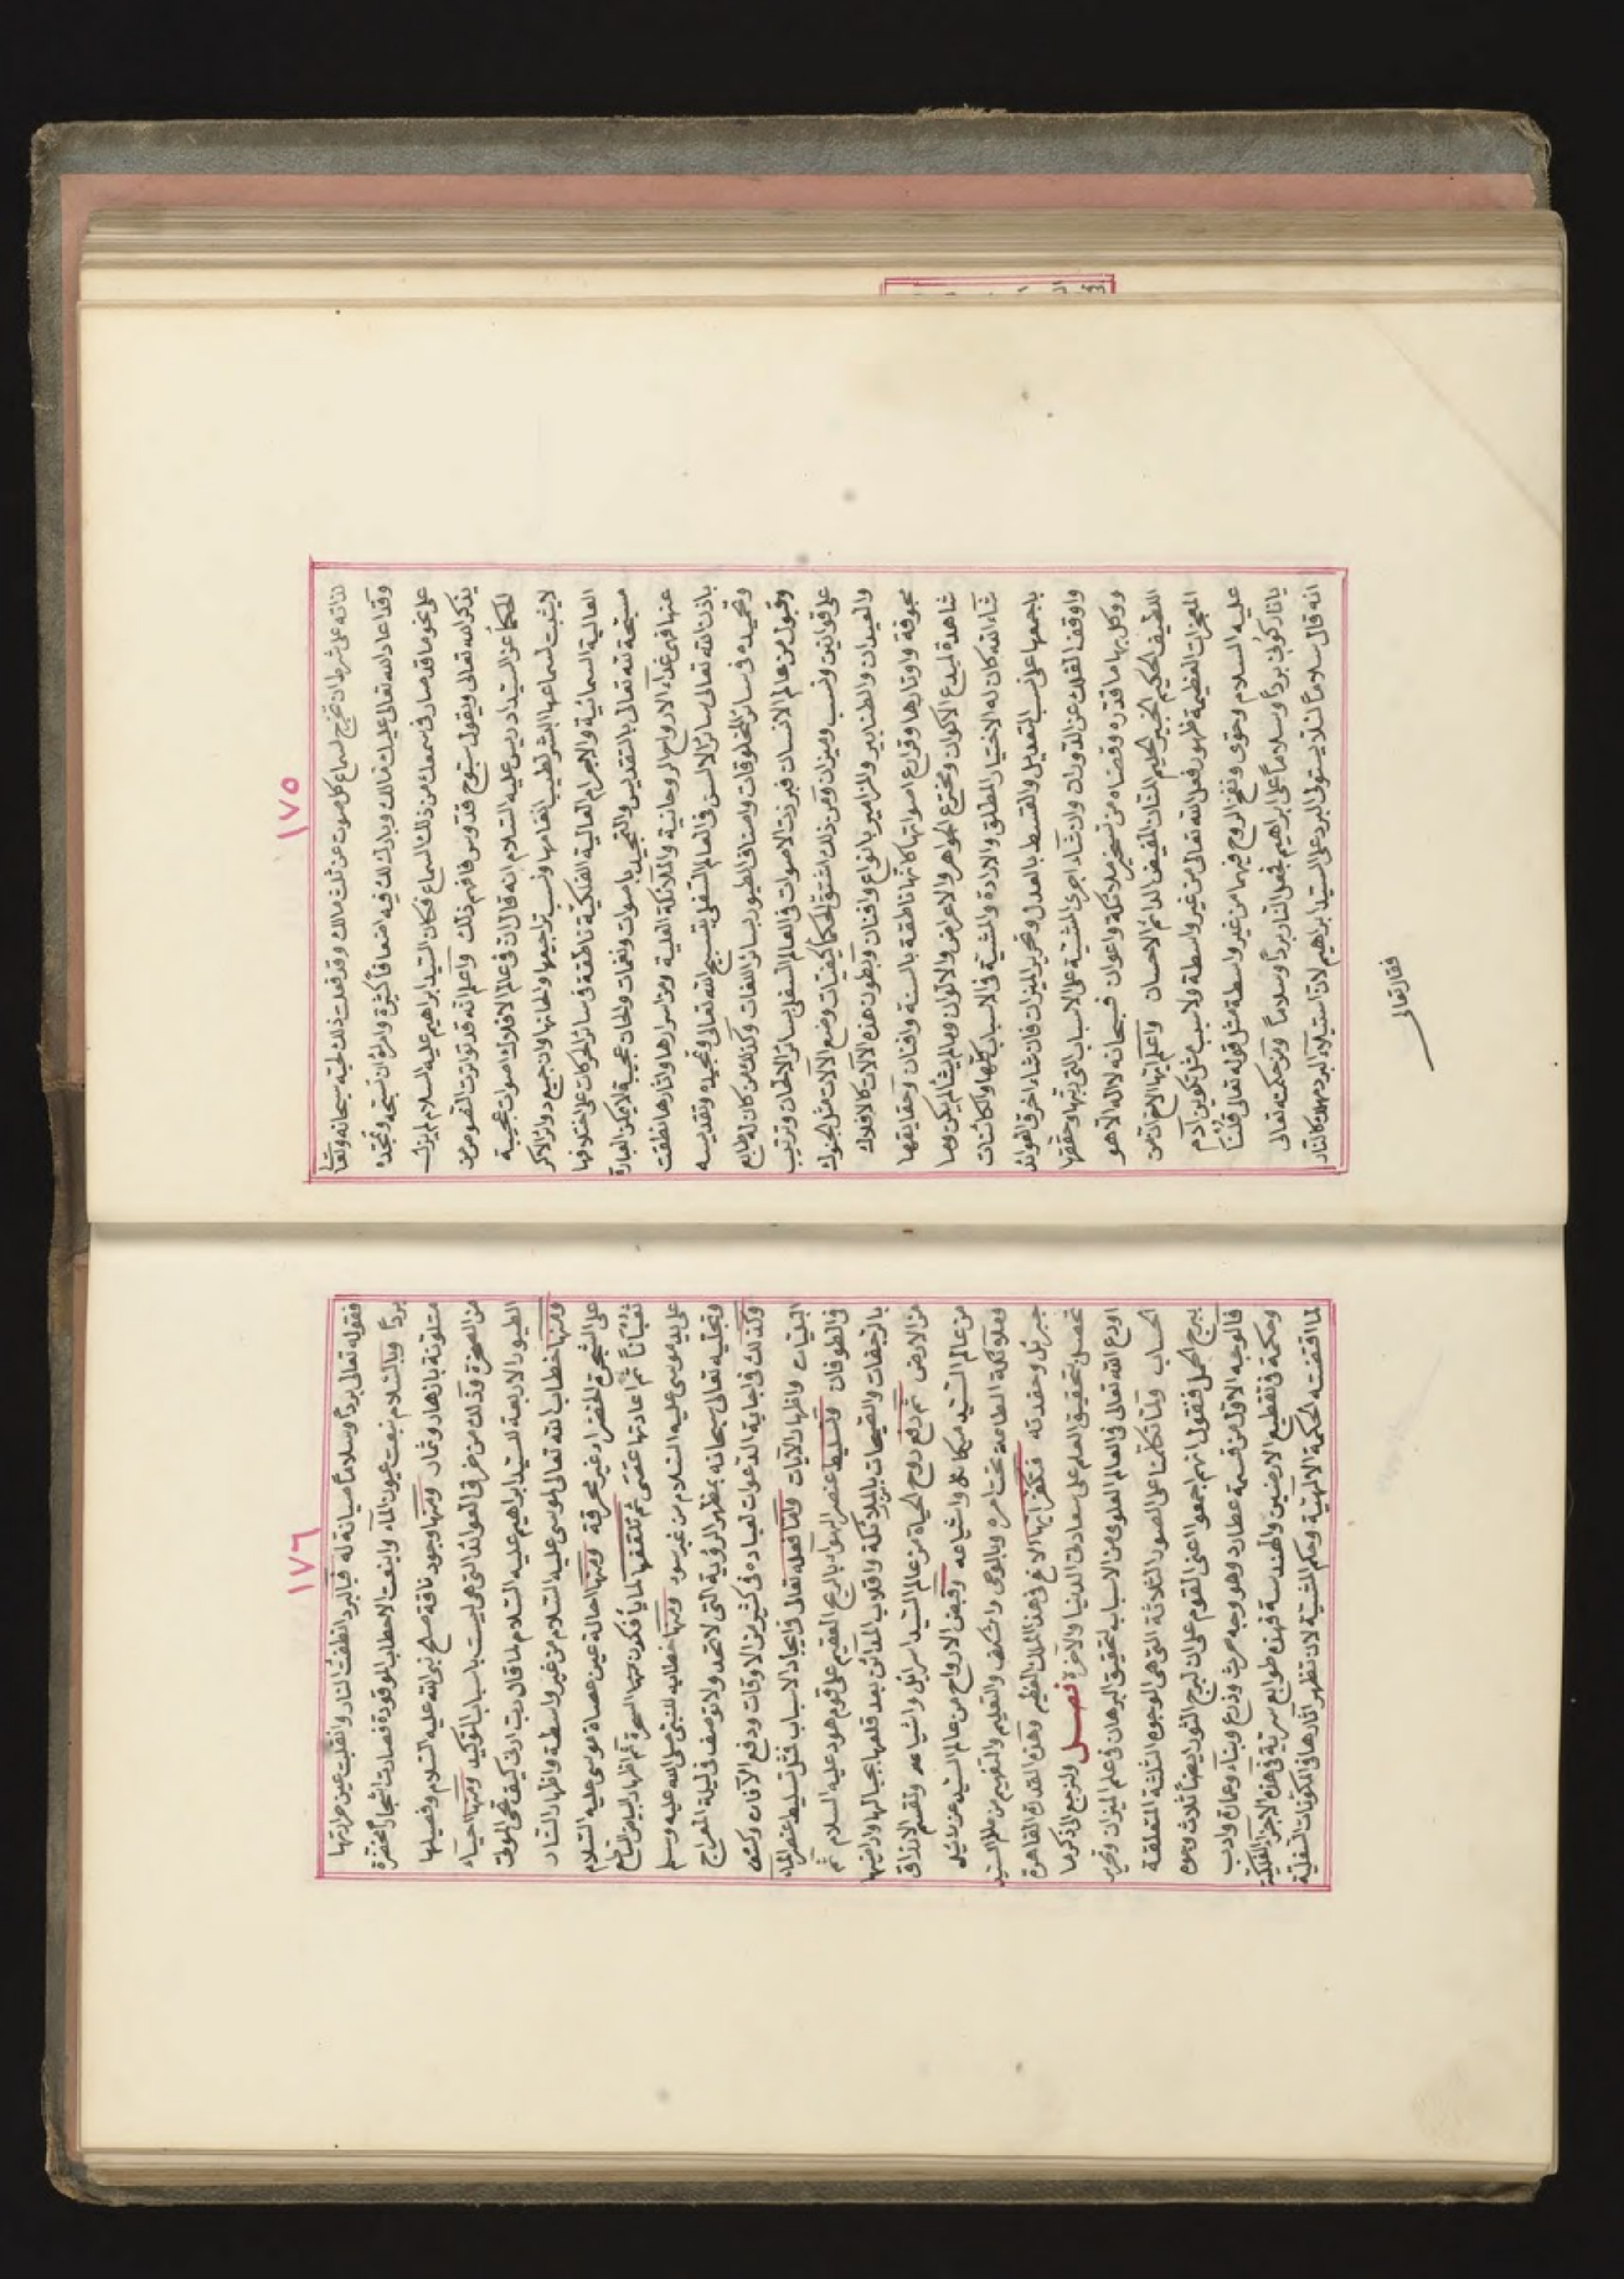 ١٧٥
لذاته على شرط ان تخرج لسماع كل صوت عن ثلث مالك وقد فعلت ذلك لمحبته سبحانه وتعالى
وقد اعاد الله تعالى عليك مالك وبارك لك فيه اضعافاً كثيرة وامرك ان تسبحه وتمجده
على نحو ما قد صار في سمعك من ذلك السماع فكان السيد ابراهيم عليه السلام لم يزل
يذكر الله تعالى ويقول سبوح قدوس فافهم ذلك واعلم انه قد تواترت النفوس من
الحكما عن السيد ادريس عليه السلام انه قال ان في عالم الافلاك اصوات عجيبة
لا يثبت لسماعها البشر لطيب انغامها ونسب تراجيعها والحانها وان جميع دوائر الاكر
العالية السمائية والاجرام العالية الفلكية ناطقة في سائر الحركات على اختلافها
مسبحة لله تعالى بالتقديس والتمجيد باصوات ونغمات والحان عجيبة لا يمكن العبارة
عنها فهي غذاء الارواح الروحانية والملائكة العلية ومن اسرارها واثارها نطقت
باذن الله تعالى سائر الالسن في العالم السفلي بتسبيح الله تعالى وتمجيده وتقديسه
وتحميده في سائر المخلوقات واصناف الطيور بسائر اللغات وكذلك من كان له طابع
وقبول من عالم الانسان فبرزت الاصوات في العالم السفلي بسائر الالحان وترتيب
على قوانين ونسب وميزان ومن ذلك اشتق الحكما كيفيات وضع الآلات مثل الجنوك
والعيدان والطنابير والمزامير بانواع وافنان وبطون هذه الآلات كالافلاك
مجوفة واوتارها وقرارع اصواتها كانها ناطقة بالسنة وافنان وحقايقها
شاهدة لمبدع الاكوان ومخترع الجواهر والاعراض والالوان وما لم يشا لم يكن وما
شاء الله كان له الاختيار المطلق والارادة والمشية في الاسباب كلها والكائنات
باجمعها على نسب التعديل والقسط بالعدل وتحرير الميزان فان شاء اخرق العوائد
واوقف الفلك عن الدوران وان شاء اجرى المشية على الاسباب التي رتبها وحققها
ووكل بها ما قدره وقضاه من تسخير ملائكة واعوان فسبحانه لا اله الا هو
اللطيف الحكيم الخبير الحليم المنان المفيض الدائم الاحسان واعلم ايها الاخ ان من
المعجزات العظيمة ظهور فعل الله تعالى من غير واسطة ولا سبب مثل تكوين آدم
عليه السلام وحوى ونفخ الروح فيهما من غير واسطة مثل قوله تعالى قلنا
يا نار كوني برداً وسلاماً على ابراهيم فجعل النار برداً وسلاماً ومن حكمته تعالى
انه قال سلاماً لئلا يستولى البرد على السيد ابراهيم لان استيلاء البرد مهلك كالنار
فقال تعالى
١٧٦
فقوله تعالى برداً وسلاماً صيانة له فبالبرد انطفت النار وانقلبت عين حرارتها
برداً وبالسلام نبعت عيون الماء واينعت الاحطاب الموقودة فصارت اشجاراً مخضرة
متلونة بازهار وثمار ومنها وجود ناقة صلح نبي الله عليه السلام وفصيلها
من الصخرة وذلك من خرق العوائد التي هي ليست باسباب التوكيد ومنها احياء
الطيور الاربعة للسيد ابراهيم عليه السلام لما قال رب ارني كيف تحي الموتى
ومنها خطاب الله تعالى لموسى عليه السلام من غير واسطة واظهار النار
على الشجرة الخضراء غير محرقة ومنها احالة عين عصاة موسى عليه السلام
ثعباناً ثم اعادتها عصى ثم تلقفها لما يأفكون منها السحرة ثم اظهار البياض الساطع
على يد موسى عليه السلام من غير سوء ومنها خطابه للنبي صلى الله عليه وسلم
وتجليه تعالى سبحانه بمظهر الرؤية التي لا تحد ولا توصف في ليلة المعراج
وكذلك في اجابة الدعوات لعباده في كثير من الاوقات ودفع الآفات وكشف
البليات واظهار الآيات واما فعله تعالى في ايجاد الاسباب فمثل تسليط عنصر الماء
في الطوفان وتسليط عنصر الهوا بالريح العقيم على قوم هود عليه السلام ثم
بالرجفات والصيحات بالملائكة وانقلاب المدائن بعد قلعها بجبالها واراضيها
من الارض ثم دفع روح الحياة من عالم السيد اسرافيل واشياعه وتقسم الارزاق
من عالم السيد ميكائيل واشياعه وقبض الارواح من عالم السيد عزرائيل
وملائكة الطامة تحت امره وبالوحي واشكف والتعليم والتفهيم من عالم السيد
جبريل وحفدته فتفكر ايها الاخ في هذا الملك العظيم وهذه القدرة القاهرة
تحصل بتحقيق العلم على سعادتي الدنيا والآخرة فصل ولنرجع الى ذكر ما
اودع الله تعالى في العالم العلوي من الاسباب لتحقيق البرهان في علم الميزان وتحرير
الحساب ولما تكلمنا على الصور الثلاثة التي هي الوجوه الثلثة المتعلقة
ببرج الحمل فنقول انهم اجمعوا اعني القوم على ان لبرج الثور ايضاً ثلاث وجوه
فالوجه الاول من قسمة عطارد وهو وجه حرث وذرع وبناء وعمارة وادب
وحكمة في تقطيع الارضين والهندسة فهذه طوابع سرية في هذه الاجزاء الفلكية
لما اقتضته الحكمة الالهية وحكم المشية لان تظهر آثارها في المكونات السفلية